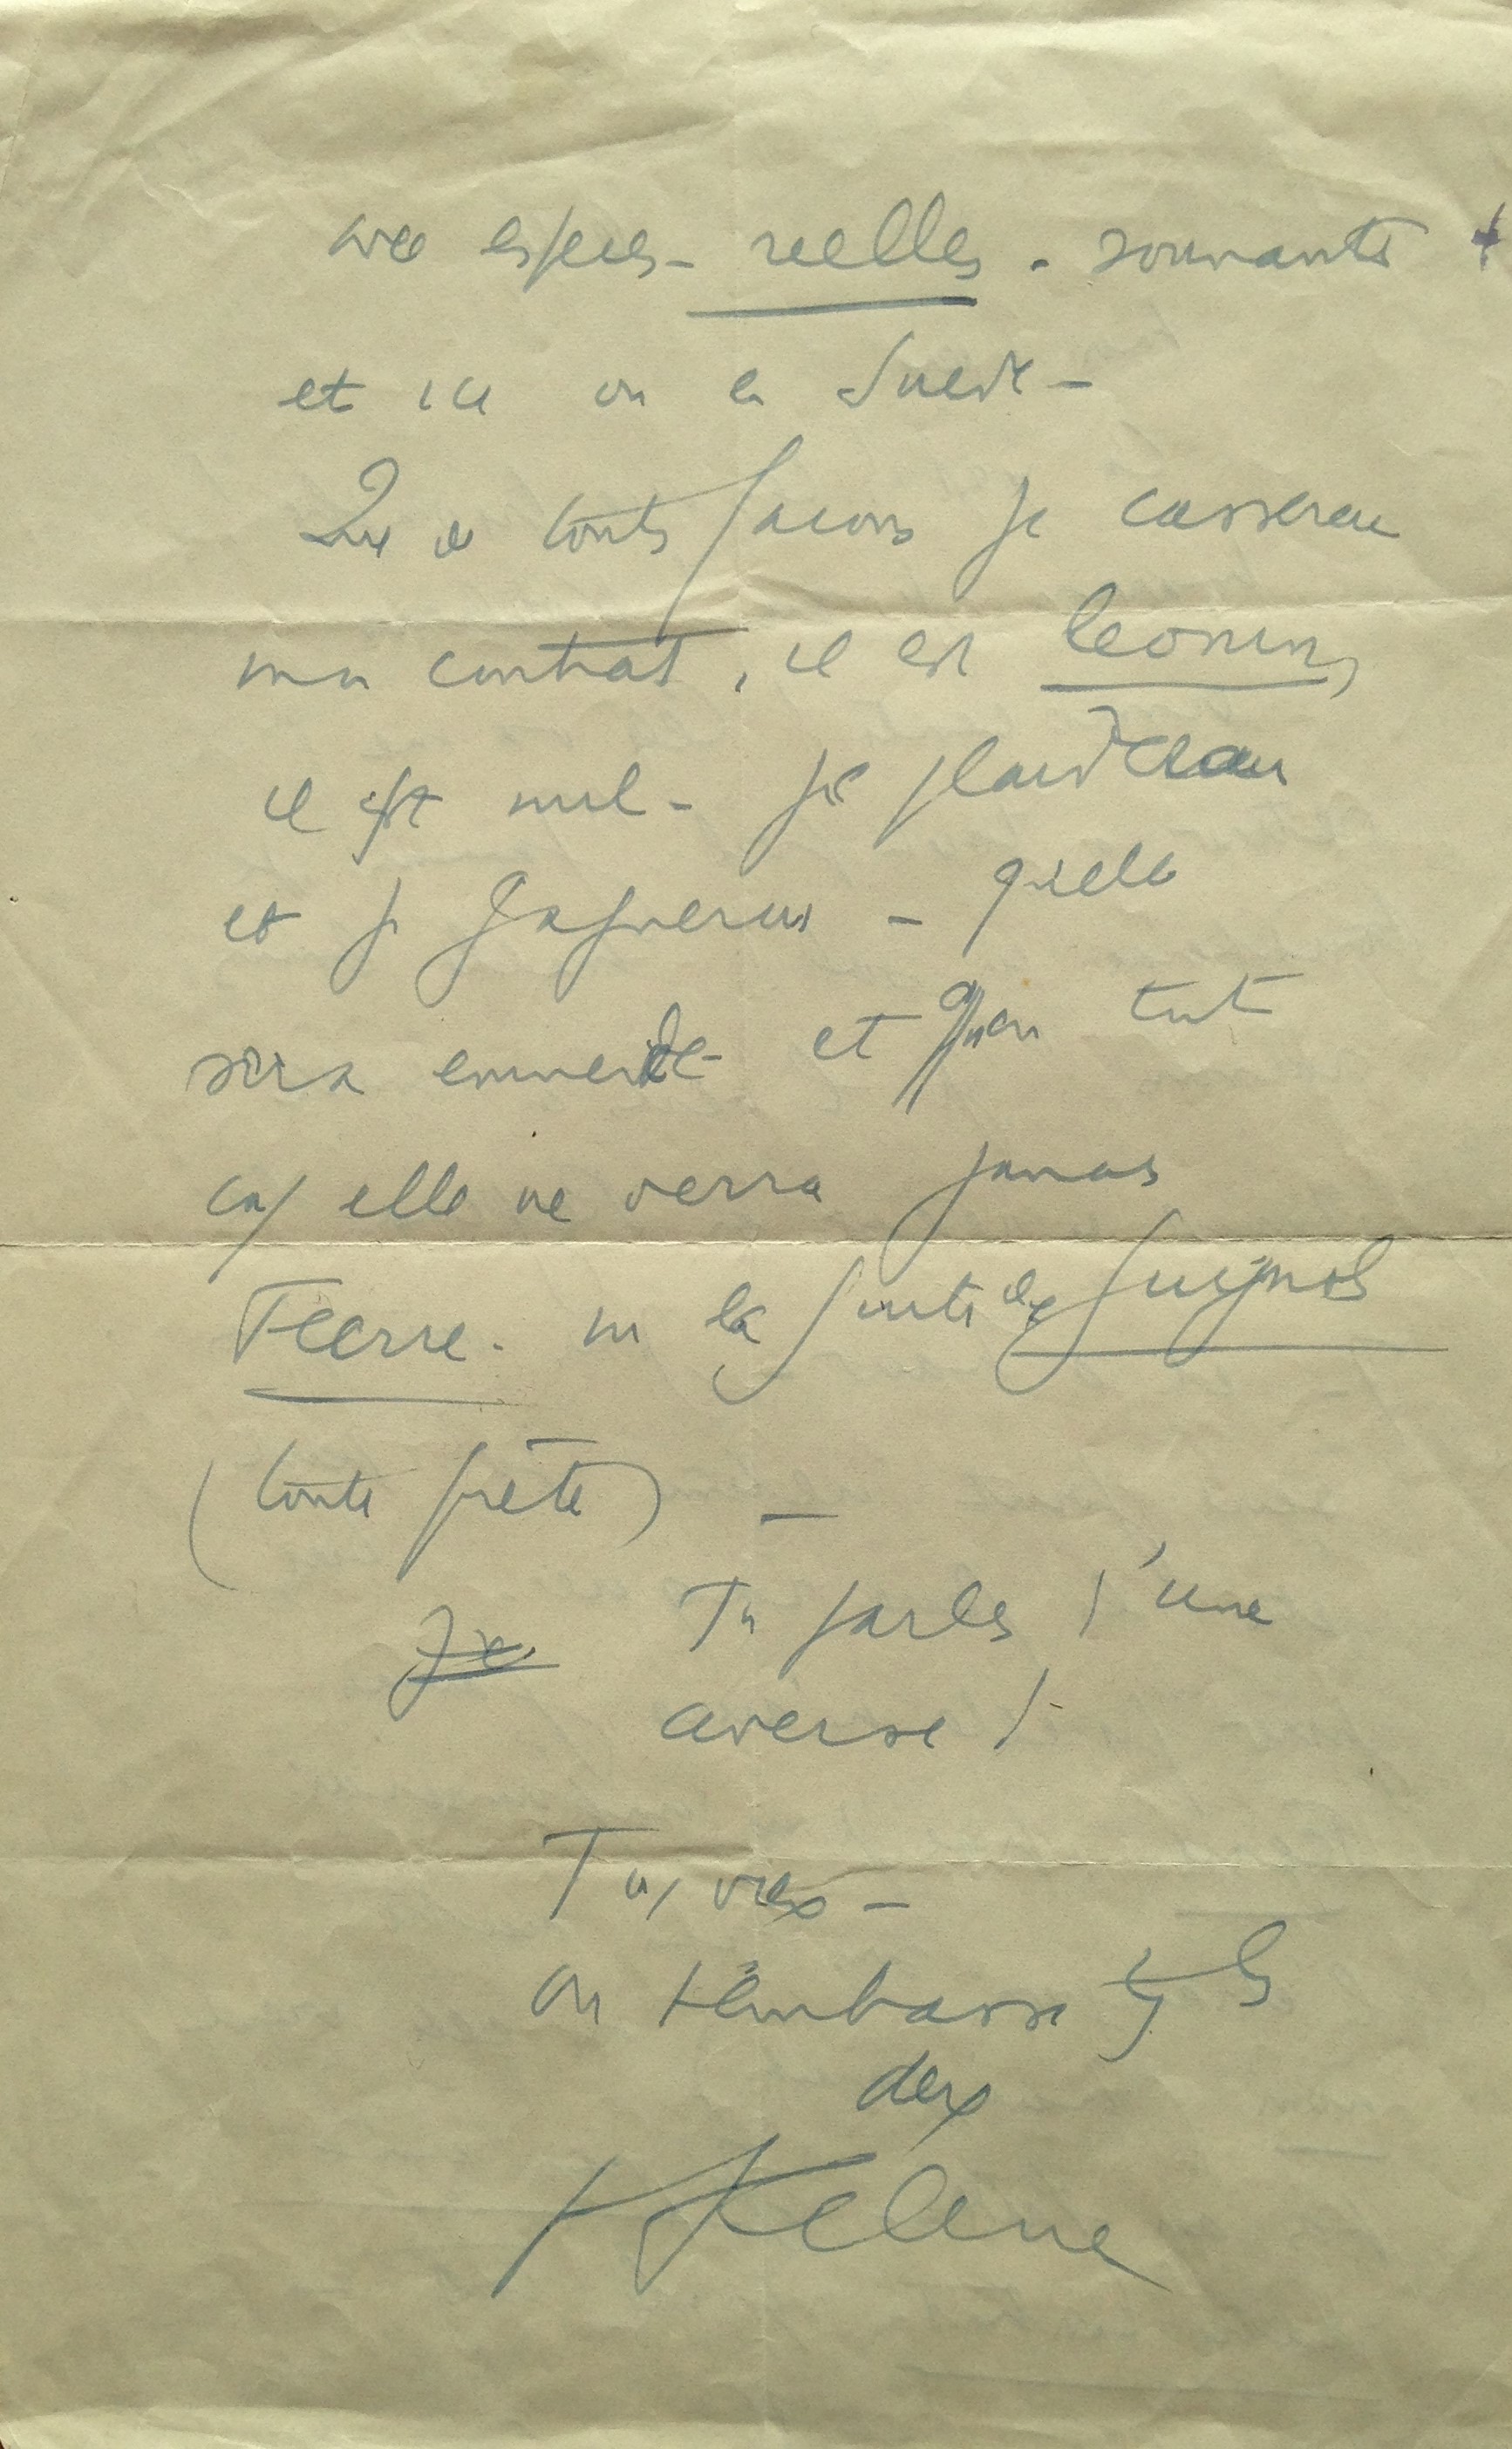 avec espèces - réelles - sonnantes +
et ici ou en Suède -
Que de toutes façons je casserai
mon contrat, il est leonin,
il est nul - je plaiderai
et je gagnerai - qu'elle
sera emmerdée et qu'en tout
cas elle ne verra jamais
Féerie. ni la suite de Guignols
(toute prête) -
Je Tu parles d'une
averse !
Tu vois -
on t'embrasse ts les
deux